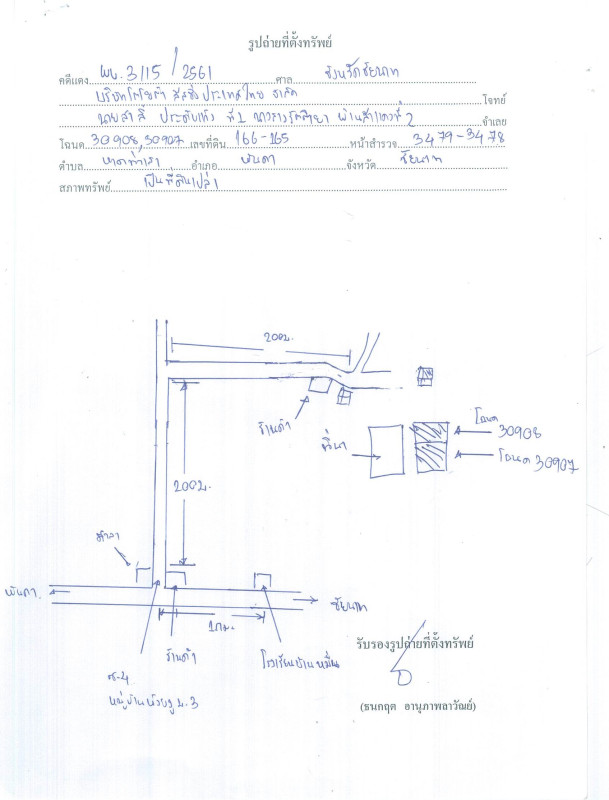 รูปถ่ายที่ตั้งทรัพย์
คดีแดง ผบ.3115/2561 ศาล จังหวัดชัยนาท
บริษัทโตโยต้า ลีสซิ่ง ประเทศไทย จำกัด โจทย์
นายสาลี่ ที่ 1 ที่ 2 จำเลย
โฉนด 30908,30907 เลขที่ดิน 166-165 หน้าสำรวจ 3479-3478
ตำบล หาดท่าเสา อำเภอ จังหวัด ชัยนาท
สภาพทรัพย์ เป็นที่ดินเปล่า
200ม.
ร้านค้า
ที่นา
โฉนด 30908
โฉนด 30907
200ม.
ศาลา
ชัยนาท
1กม.
ร้านค้า
โรงเรียนบ้านหมื่น
ซ.4
หมู่บ้านห้วยงู ม.3
รับรองรูปถ่ายที่ตั้งทรัพย์
(ธนกฤต อานุภาพลาวัณย์)